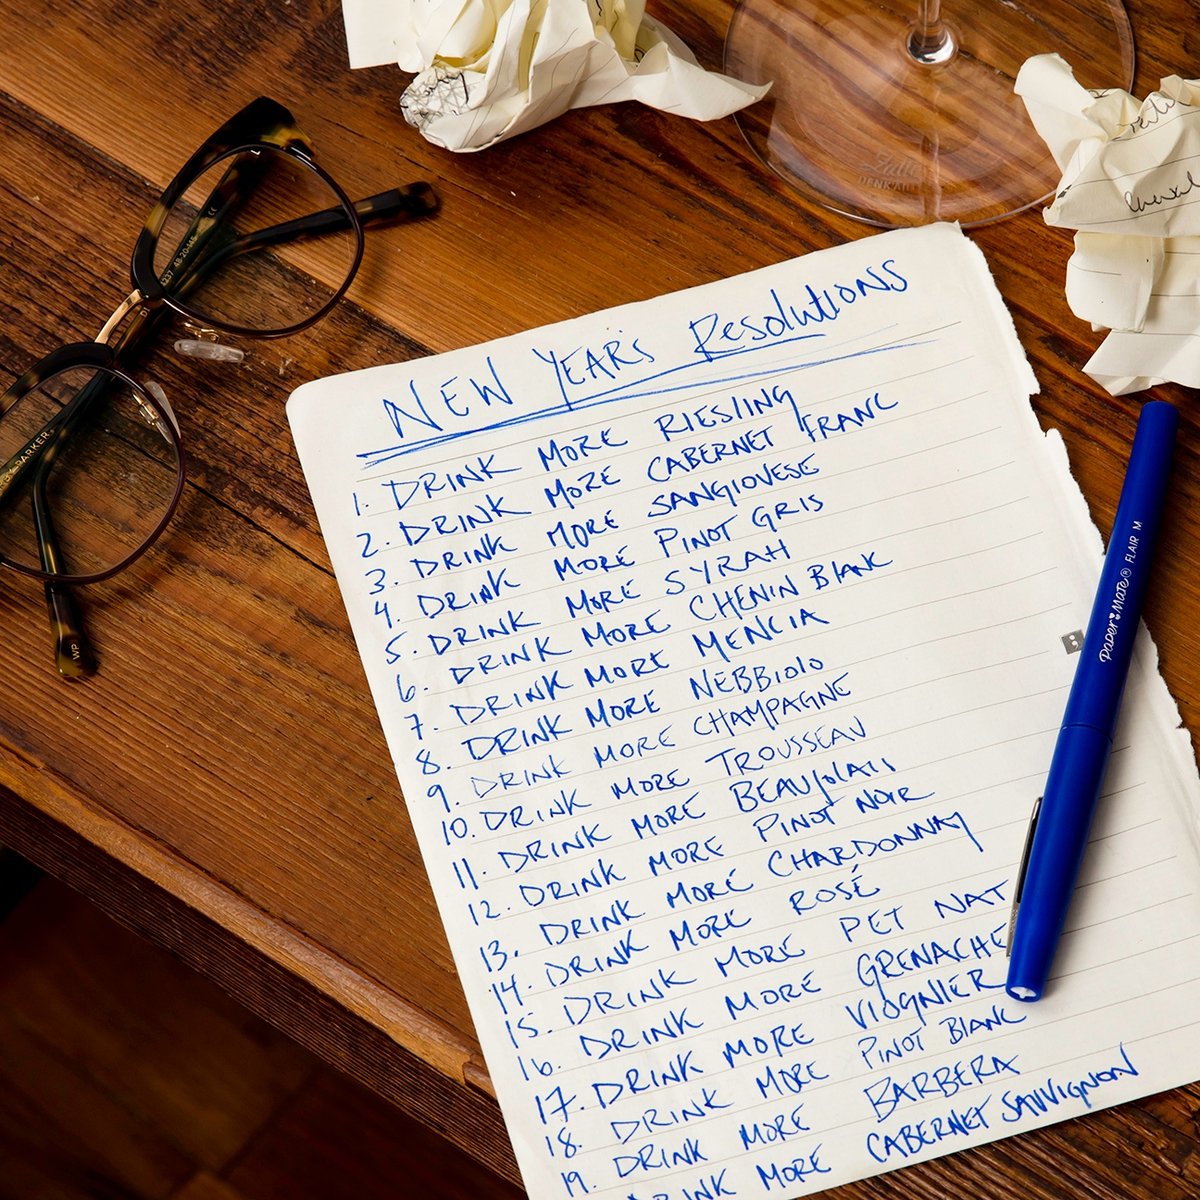 NEW YEAR'S RESOLUTIONS
1. DRINK MORE RIESLING
2. DRINK MORE CABERNET FRANC
3. DRINK MORE SANGIOVESE
4. DRINK MORE PINOT GRIS
5. DRINK MORE SYRAH
6. DRINK MORE CHENIN BLANC
7. DRINK MORE MENCIA
8. DRINK MORE NEBBIOLO
9. DRINK MORE CHAMPAGNE
10. DRINK MORE TROUSSEAU
11. DRINK MORE BEAUJOLAIS
12. DRINK MORE PINOT NOIR
13. DRINK MORE CHARDONNAY
14. DRINK MORE ROSÉ
15. DRINK MORE PET NAT
16. DRINK MORE GRENACHE
17. DRINK MORE VIOGNIER
18. DRINK MORE PINOT BLANC
19. DRINK MORE BARBERA
DRINK MORE CABERNET SAUVIGNON
PARKER
WP
Paper Mate® FLAIR M